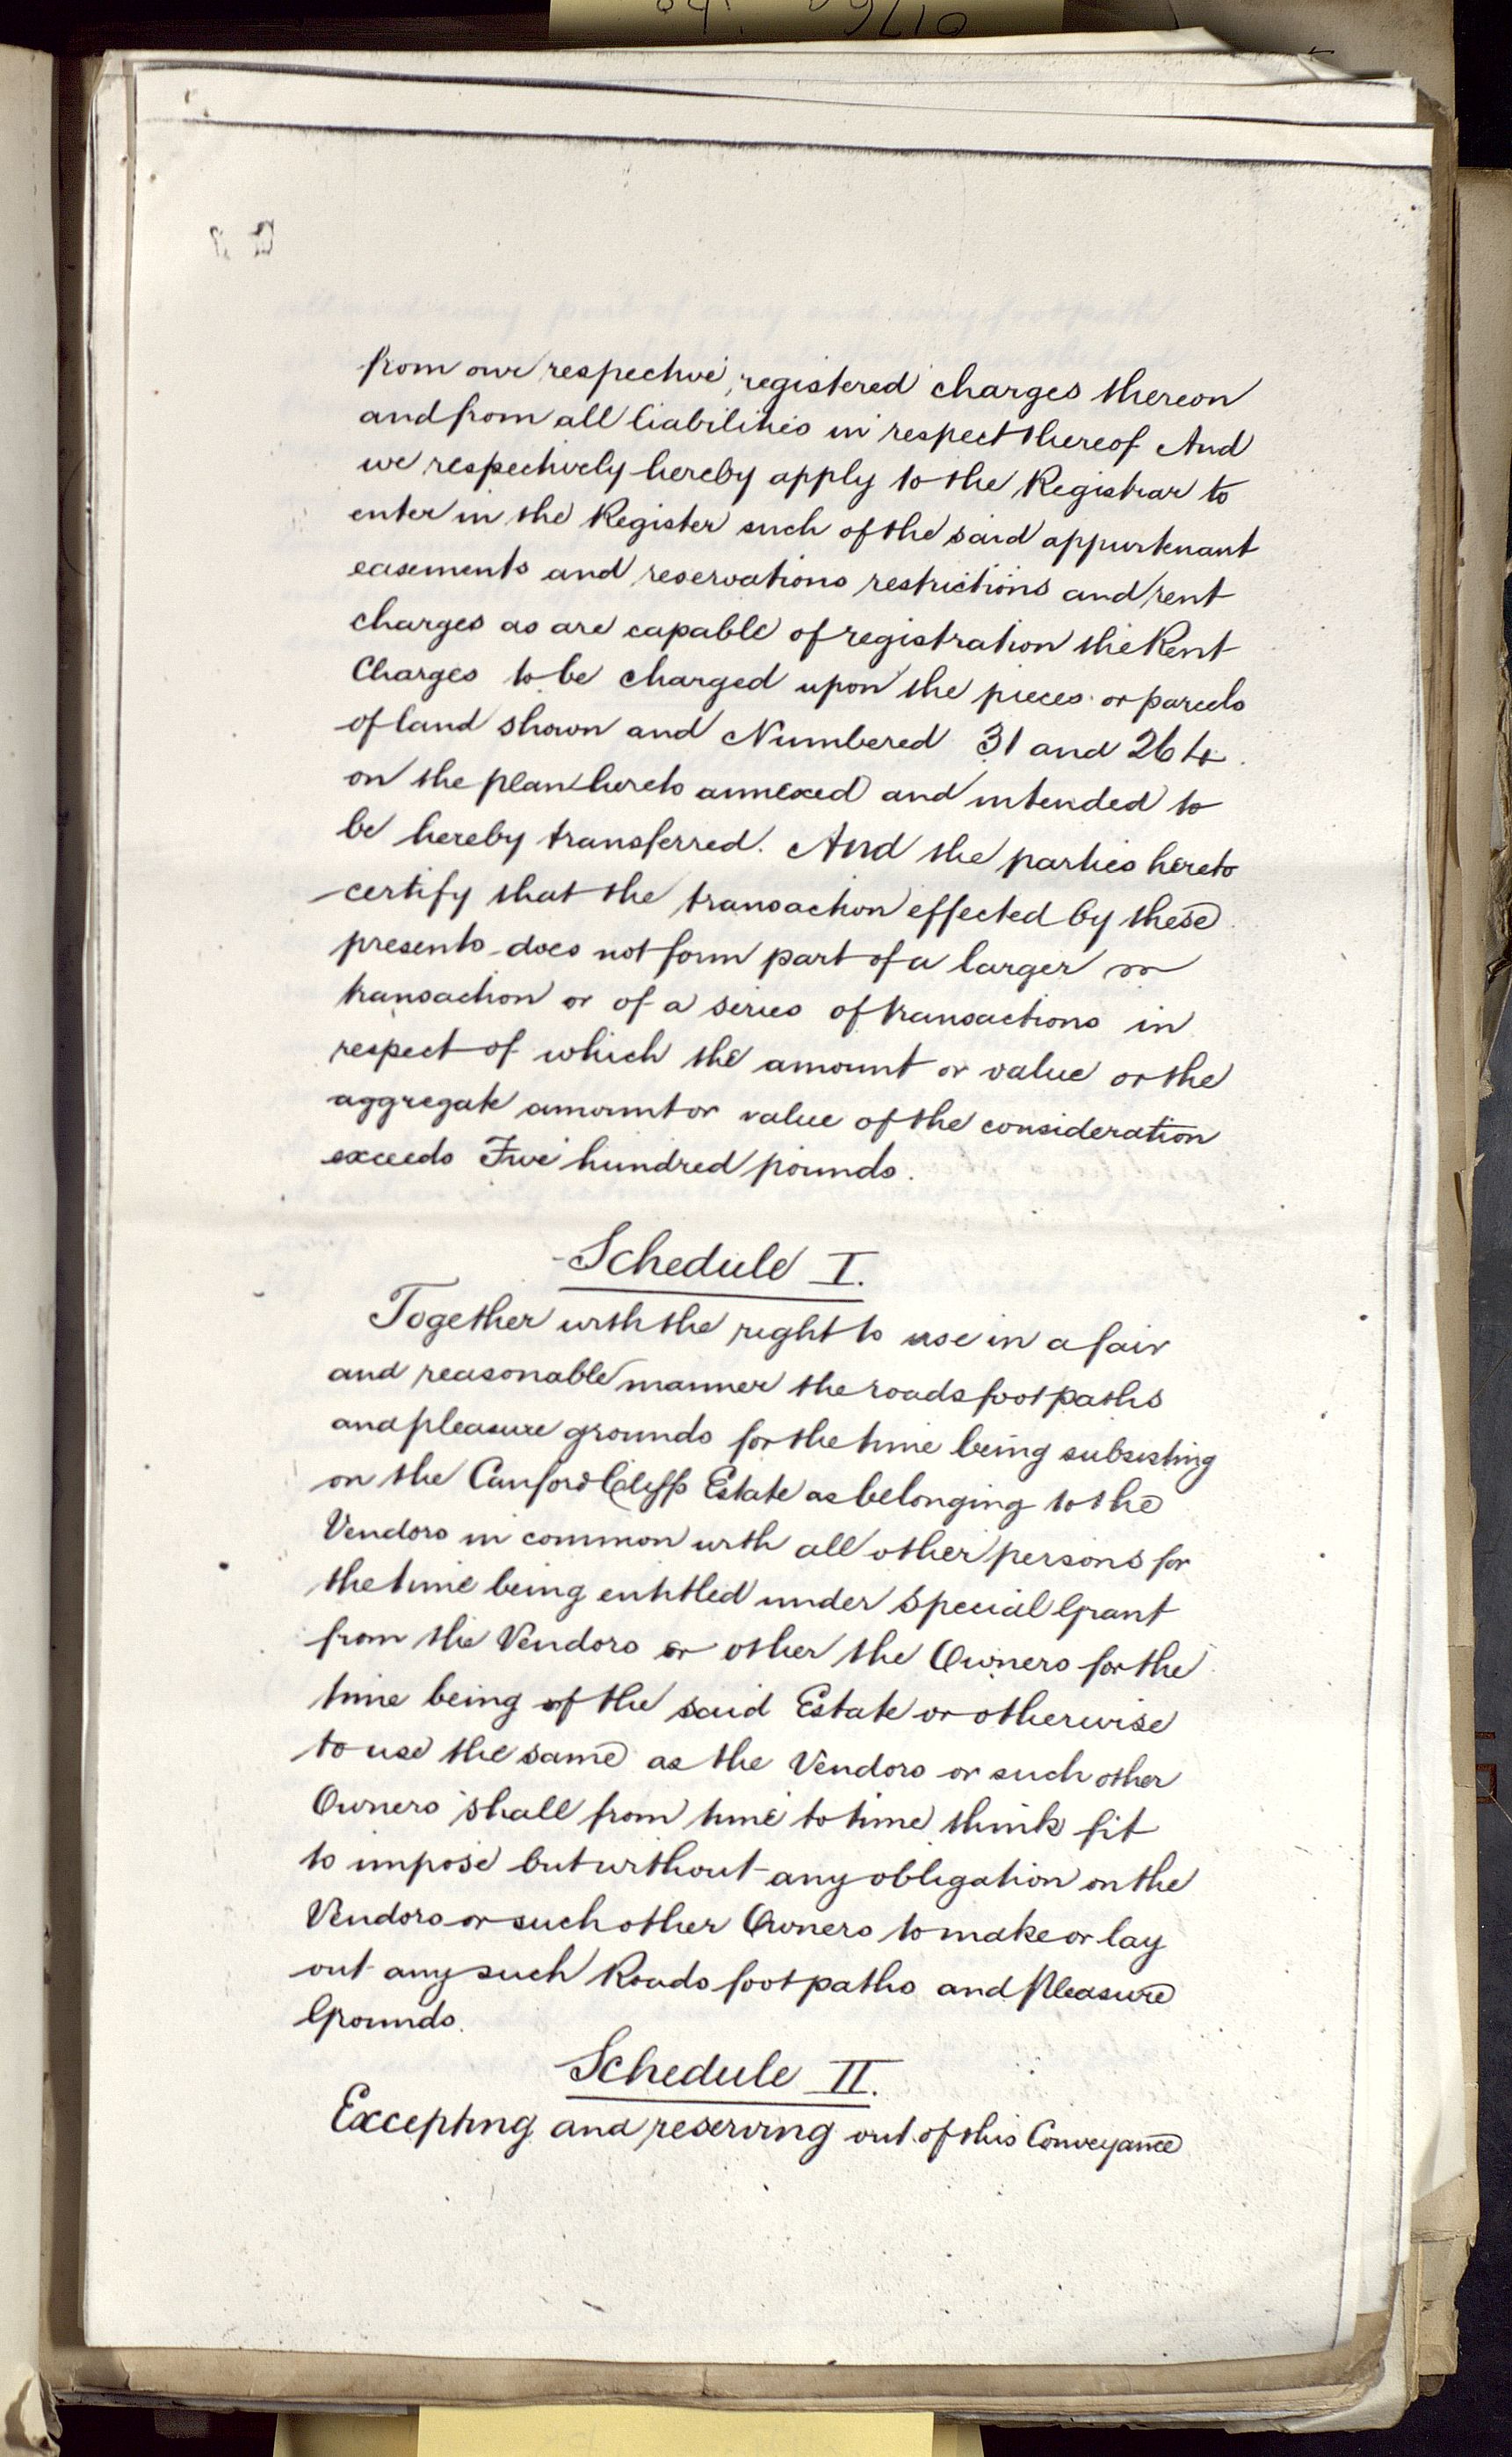 from our respective registered charges thereon
and from all liabilities in respect thereof And
we respectively hereby apply to the Registrar to
enter in the Register such of the said appurtenant
easements and reservations restrictions and rent
charges as are capable of registration the Rent
Charges to be charged upon the pieces or parcels
of land shown and Numbered 31 and 264
on the plan hereto annexed and intended to
be hereby transferred. And the parties hereto
certify that the transaction effected by these
presents does not form part of a larger
transaction or of a series of transactions in
respect of which the amount or value or the
aggregate amount or value of the consideration
exceeds Five hundred pounds.
Schedule I.
Together with the right to use in a fair
and reasonable manner the roads footpaths
and pleasure grounds for the time being subsisting
on the Canford Cliffs Estate as belonging to the
Vendors in common with all other persons for
the time being entitled under special Grant
from the Vendors or other the Owners for the
time being of the said Estate or otherwise
to use the same as the Vendors or such other
Owners shall from time to time think fit
to impose but without any obligation on the
Vendors or such other Owners to make or lay
out any such Roads footpaths and Pleasure
Grounds.
Schedule II.
Excepting and reserving out of this Conveyance